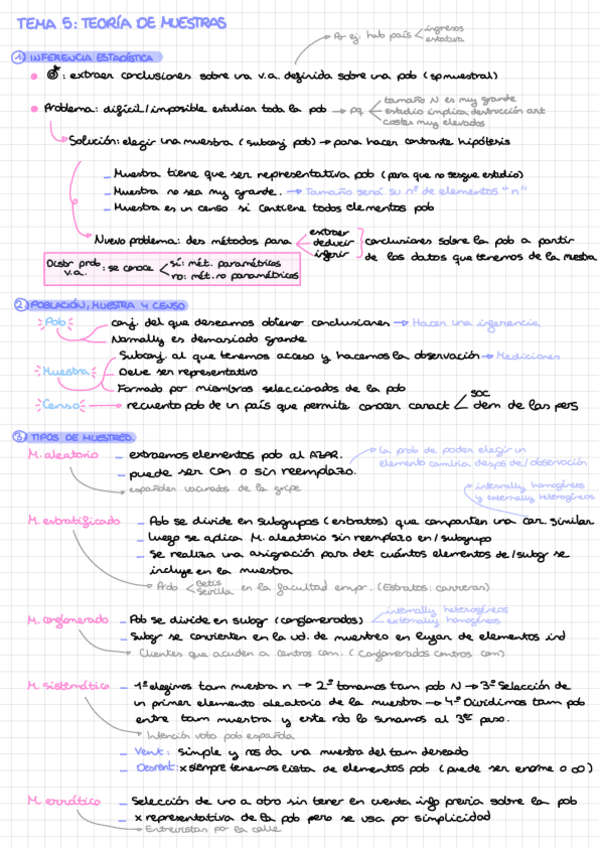 TEMA 5: TEORÍA DE MUESTRAS
Por ej: hab país < ingresos
estatura
1) INFERENCIA ESTADÍSTICA
: extraer conclusiones sobre una v.a. definida sobre una pob (sp muestral)
Problema: difícil/imposible estudiar toda la pob → pq < tamaño N es muy grande
estudio implica destrucción art
costes muy elevados
Solución: elegir una muestra (subconj pob) → para hacer contraste hipótesis
- Muestra tiene que ser representativa pob (para que no sesgue estudio)
- Muestra no sea muy grande. → Tamaño será su nº de elementos "n"
- Muestra es un censo si contiene todos elementos pob
Nuevo problema: des métodos para < extraer
deducir
inferir
conclusiones sobre la pob a partir
de los datos que tenemos de la mestra
Distr prob v.a. : se conoce < sí: mét. paramétricos
no: mét. no paramétricos
2. POBLACIÓN, MUESTRA Y CENSO
Pob conj. del que deseamos obtener conclusiones → Hacer una inferencia
Normally es demasiado grande
Subconj. al que tenemos acceso y hacemos la observación → Mediciones
Muestra Debe ser representativo
Formado por miembros seleccionados de la pob
Censo → recuento pob de un país que permite conocer caract < soc
dem de las pers
3. TIPOS DE MUESTREO.
M. aleatorio - extraemos elementos pob al AZAR.
→ la prob de poder elegir un
elemento cambia desps de/observación
- puede ser con o sin reemplazo.
españoles vacunados de la gripe
→ internally homogéneos
y externally heterogéneos
M. estratificado - Pob se divide en subgrupos (estratos) que comparten una car. similar
- luego se aplica M. aleatorio sin reemplazo en/subgrupo
- Se realiza una asignación para det cuántos elementos de/subgr se
incluye en la muestra
< Betis
Sevilla en la facultad empr. (Estratos: carreras)
M. conglomerado - Pob se divide en subgr (conglomerados) < internally heterogéneos
externally homogéneos
- Subgr se convierten en la ud. de muestreo en lugar de elementos ind
Clientes que acuden a centros com. (Conglomerados centros com)
M. sistemático - 1º elegimos tam muestra n → 2º tomamos tam pob N → 3º Selección de
un primer elemento aleatorio de la muestra → 4º Dividimos tam pob
entre tam muestra y este rdo lo sumamos al 3er paso.
Intención voto pob española
- Vent: simple y nos da una muestra del tam deseado
- Desvent: x siempre tenemos lista de elementos pob (puede ser enorme o ∞)
M. errático - Selección de uno a otro sin tener en cuenta info previa sobre la pob
- x representativa de la pob pero se usa por simplicidad
Entrevistas por la calle